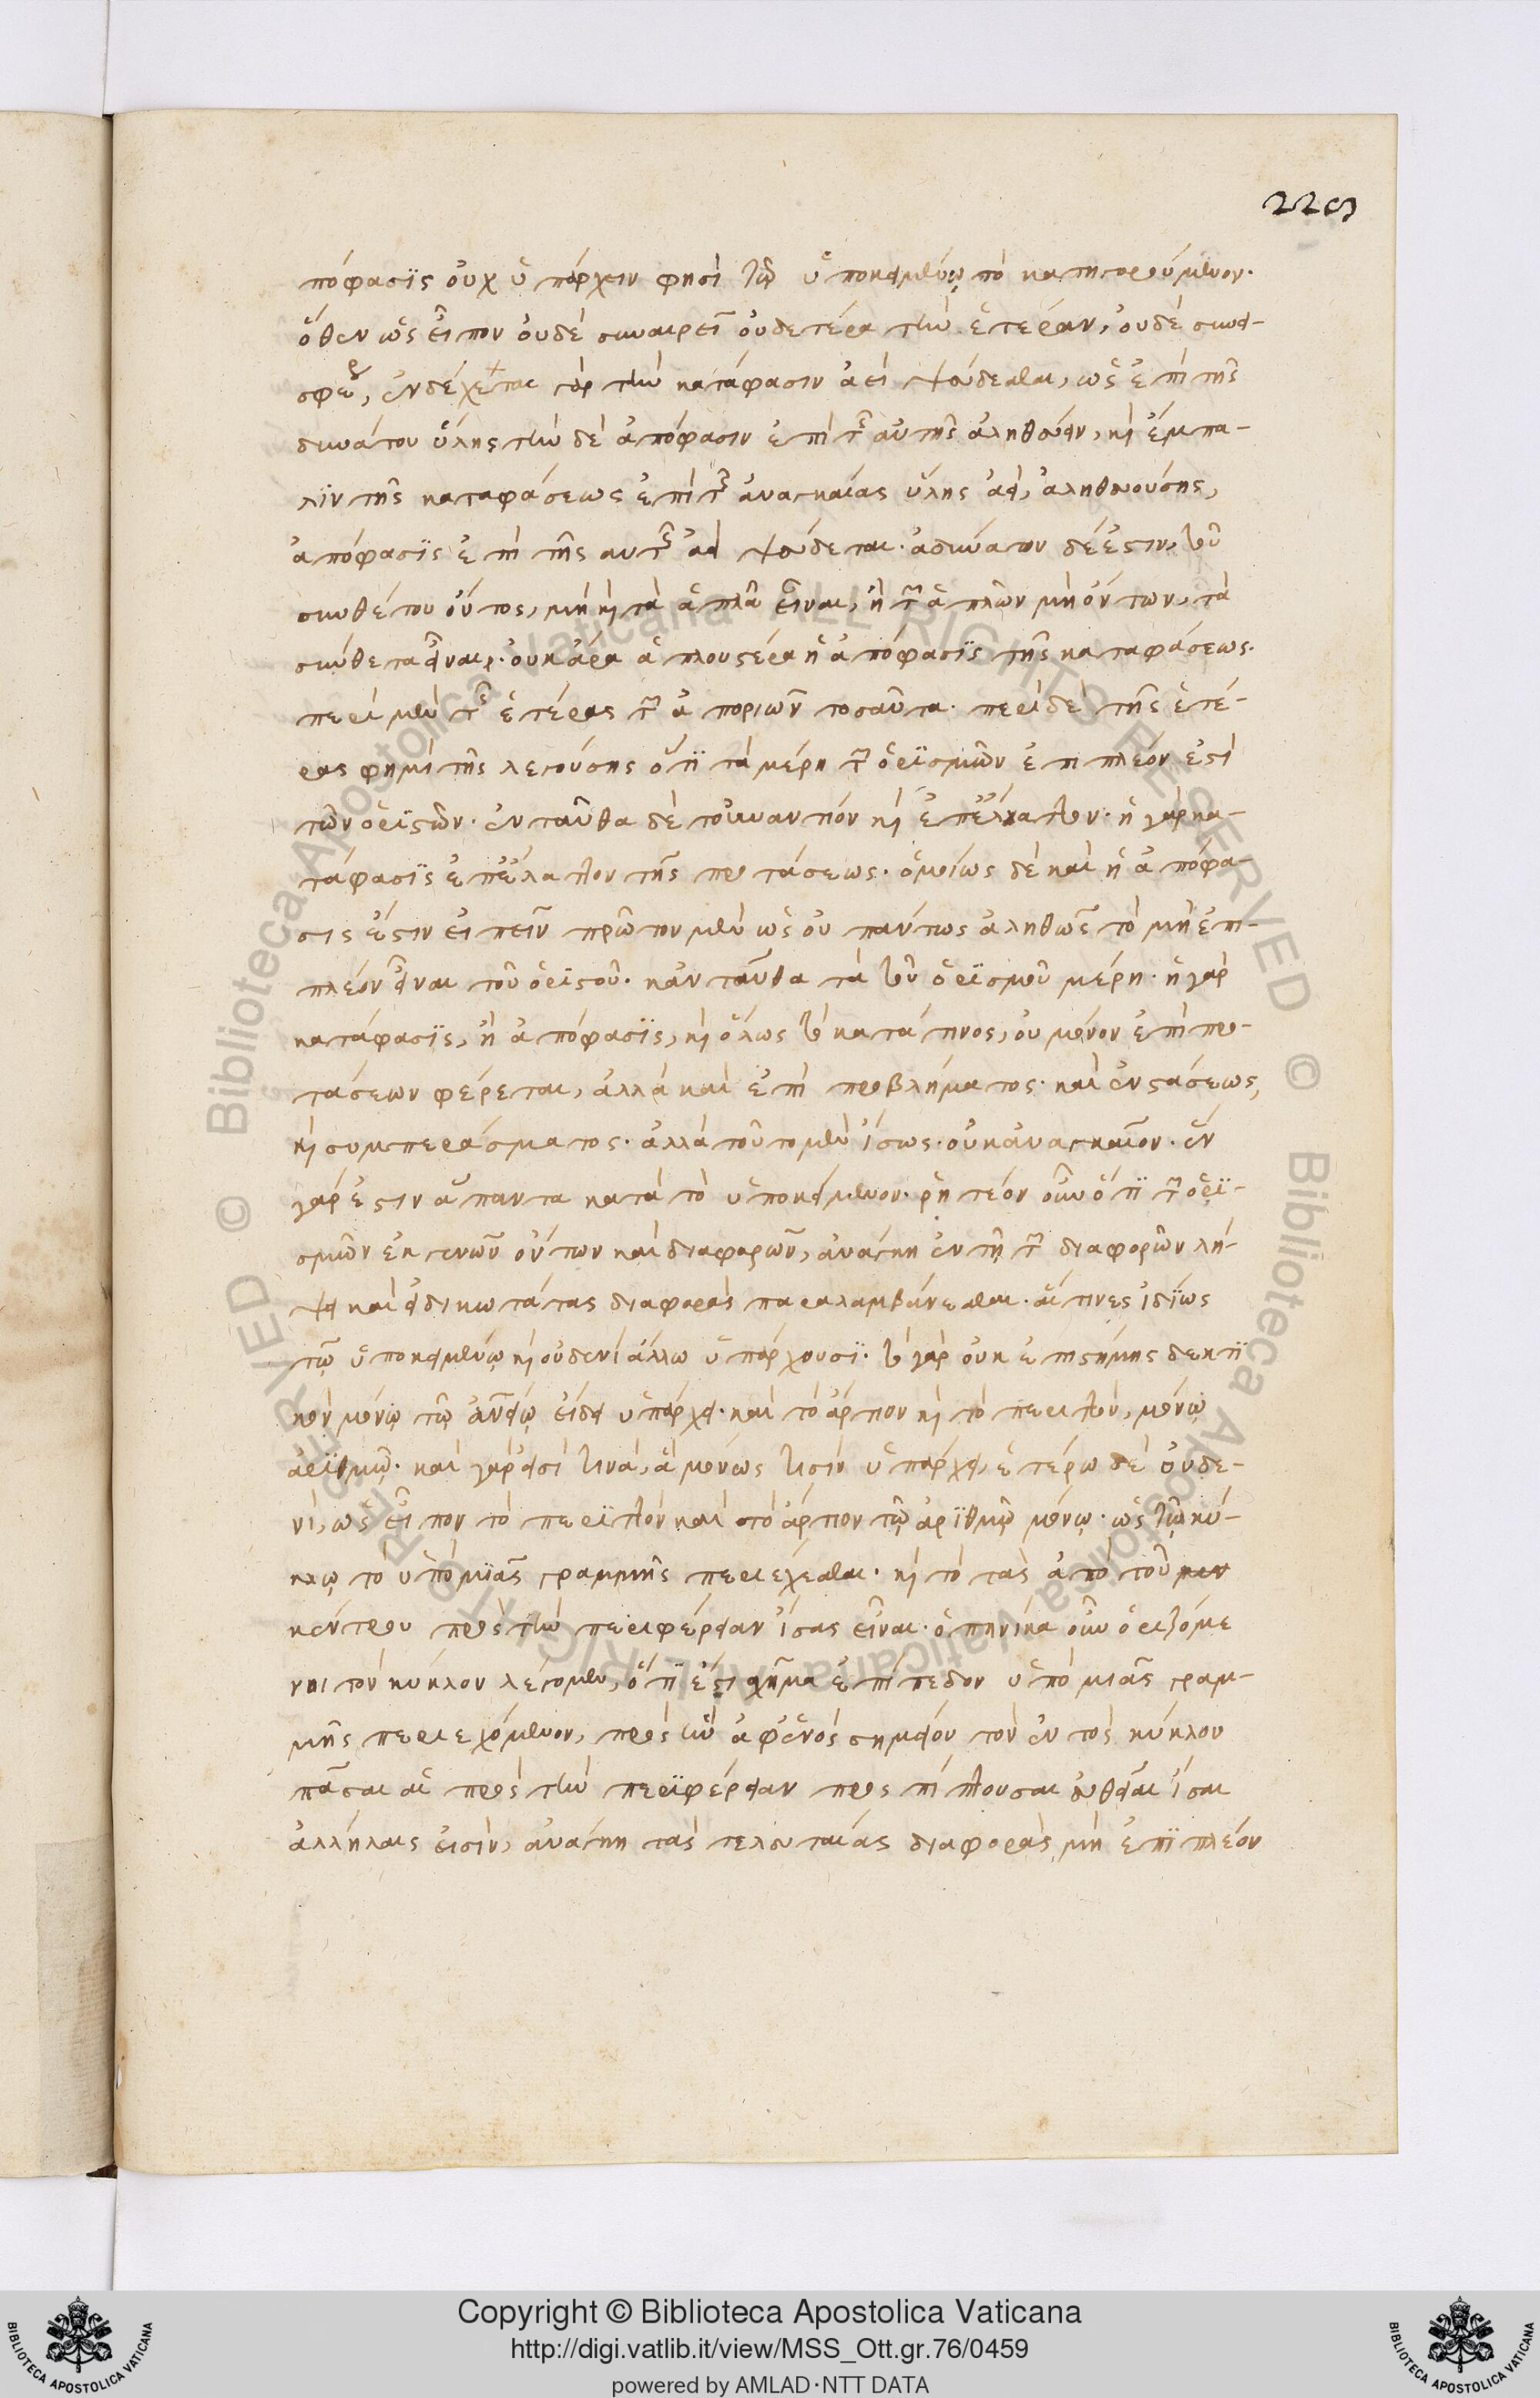 229
πόφασϊς οὐχ ὑπάρχειν φησὶ τῷ ὑποκειμένῳ τὸ κατηγορούμενον·
ὅθεν ὡς εἶπον οὐδὲ συναιρεῖ οὐδετέρα τὴν ἑτέραν, οὐδὲ συνει-
σφέρει, ἐνδέχεται γὰρ τὴν κατάφασιν ἀεὶ ψεύδεσθαι, ὡς ἐπὶ τῆς
δυνάτου ὕλης τὴν δὲ ἀπόφασιν ἐπὶ τῆς αὐτῆς ἀληθεύειν, καὶ ἔμπα-
λϊν τῆς καταφάσεως ἐπὶ τῆς ἀναγκαίας ὕλης ἀεὶ, ἀληθευούσης,
ἀπόφασϊς ἐπὶ τῆς αυτῆς ἀεὶ ψεύδεται· ἀδύνατον δέ ἐστιν, τοῦ
συνθέτου ὄντος, μὴ καὶ τὰ ἁπλᾶ εἶναι, ἢ τῶν ἁπλῶν μὴ ὄντων, τὰ
σύνθετα εἶναι· οὐκ ἄρα ἁπλουστέρα ἡ ἀπόφασϊς τῆς καταφάσεως·
περὶ μὲν τῆς ἑτέρας τῶν ἀποριῶν τοσαῦτα· περὶ δὲ τῆς ἑτέ-
ρας φημὶ τῆς λεγούσης ὅτϊ τὰ μέρη τῶν ὁρϊσμῶν ἐπι πλέον ἐστὶ
τῶν ὁρϊστῶν· ἐνταῦθα δὲ τοὐναντίον καὶ ἐπέλαττον· ἡ γὰρ κα-
τάφασϊς ἐπέλαττον τῆς προτάσεως· ὁμοίως δὲ καὶ ἡ ἀπόφα-
σις ἐστιν εἰπεῖν πρῶτον μὲν ὡς οὐ πάντως ἀληθῶς τὸ μὴ ἐπι-
πλέον εἶναι τοῦ ὁρϊστοῦ· κἀνταῦθα τὰ τοῦ ὁρϊσμοῦ μέρη· ἡ γὰρ
κατάφασϊς, ἢ ἀπόφασϊς, καὶ ὅλως τὸ κατά τινος, οὐ μόνον ἐπὶ προ-
τάσεων φέρεται, ἀλλὰ καὶ ἐπὶ προβλήματος· καὶ ἐνστάσεως,
καὶ συμπεράσματος· ἀλλὰ τοῦτο μὲν ἴσως· οὐκ ἀναγκαῖον· ἓν
γάρ ἐστιν ἅπαντα κατὰ τὸ ὑποκείμενον· ῥητέον οὖν ὅτϊ τῶν ὁρϊ-
σμῶν ἐκ γενῶν ὄντων καὶ διαφορῶν, ἀνάγκη ἐν τῇ τῶν διαφορῶν λή-
ψει καὶ εἰδικωτάτας διαφορὰς παραλαμβάνεσθαι· αἵτινες ἰδίως
τῷ ὑποκειμένῳ καὶ οὐδενὶ ἄλλω ὑπάρχουσϊ· τὸ γὰρ οὐκ ἐπιστήμης δεκτϊ
κὸν μόνῳ τῷ ἀνθρωπείῳ εἴδει ὑπάρχει· καὶ τὸ ἄρτιον καὶ τὸ περιττόν, μόνῳ
ἀρϊθμῷ· καὶ γὰρ εἰσὶ τινὰ, ἃ μόνως τισὶν ὑπάρχει, ἑτέρω δὲ οὐδε-
νί, ὡς εἶπον τὸ περϊττὸν καὶ τὸ ἄρτιον τῷ ἀρϊθμῷ μόνῳ· ὡς τῷ κύ-
κλῳ τὸ ὑπὸ μϊᾶς γραμμῆς περιέχεσθαι· καὶ τὸ τὰς ἀπὸ τοῦ κεν
κέντρου πρὸς τὴν περιφέρειαν ἴσας εἶναι· ὁπηνίκα οὖν ὁριζόμε
νοι τὸν κύκλον λέγομεν, ὅτϊ ἐστι σχῆμα ἐπίπεδον ὑπὸ μιᾶς γραμ-
μῆς περιεχόμενον, πρὸς ἣν ἀφ' ἑνὸς σημείου τῶν ἐντὸς κύκλου
πᾶσαι αἱ πρὸς τὴν περϊφέρειαν προσπίπτουσαι εὐθεῖαι ἴσαι
ἀλλήλαις εἰσὶν, ἀνάγκη τὰς τελευταίας διαφορὰς μὴ ἐπϊ πλέον
Copyright © Biblioteca Apostolica Vaticana
http://digi.vatlib.it/view/MSS_Ott.gr.76/0459
powered by AMLAD·NTT DATA